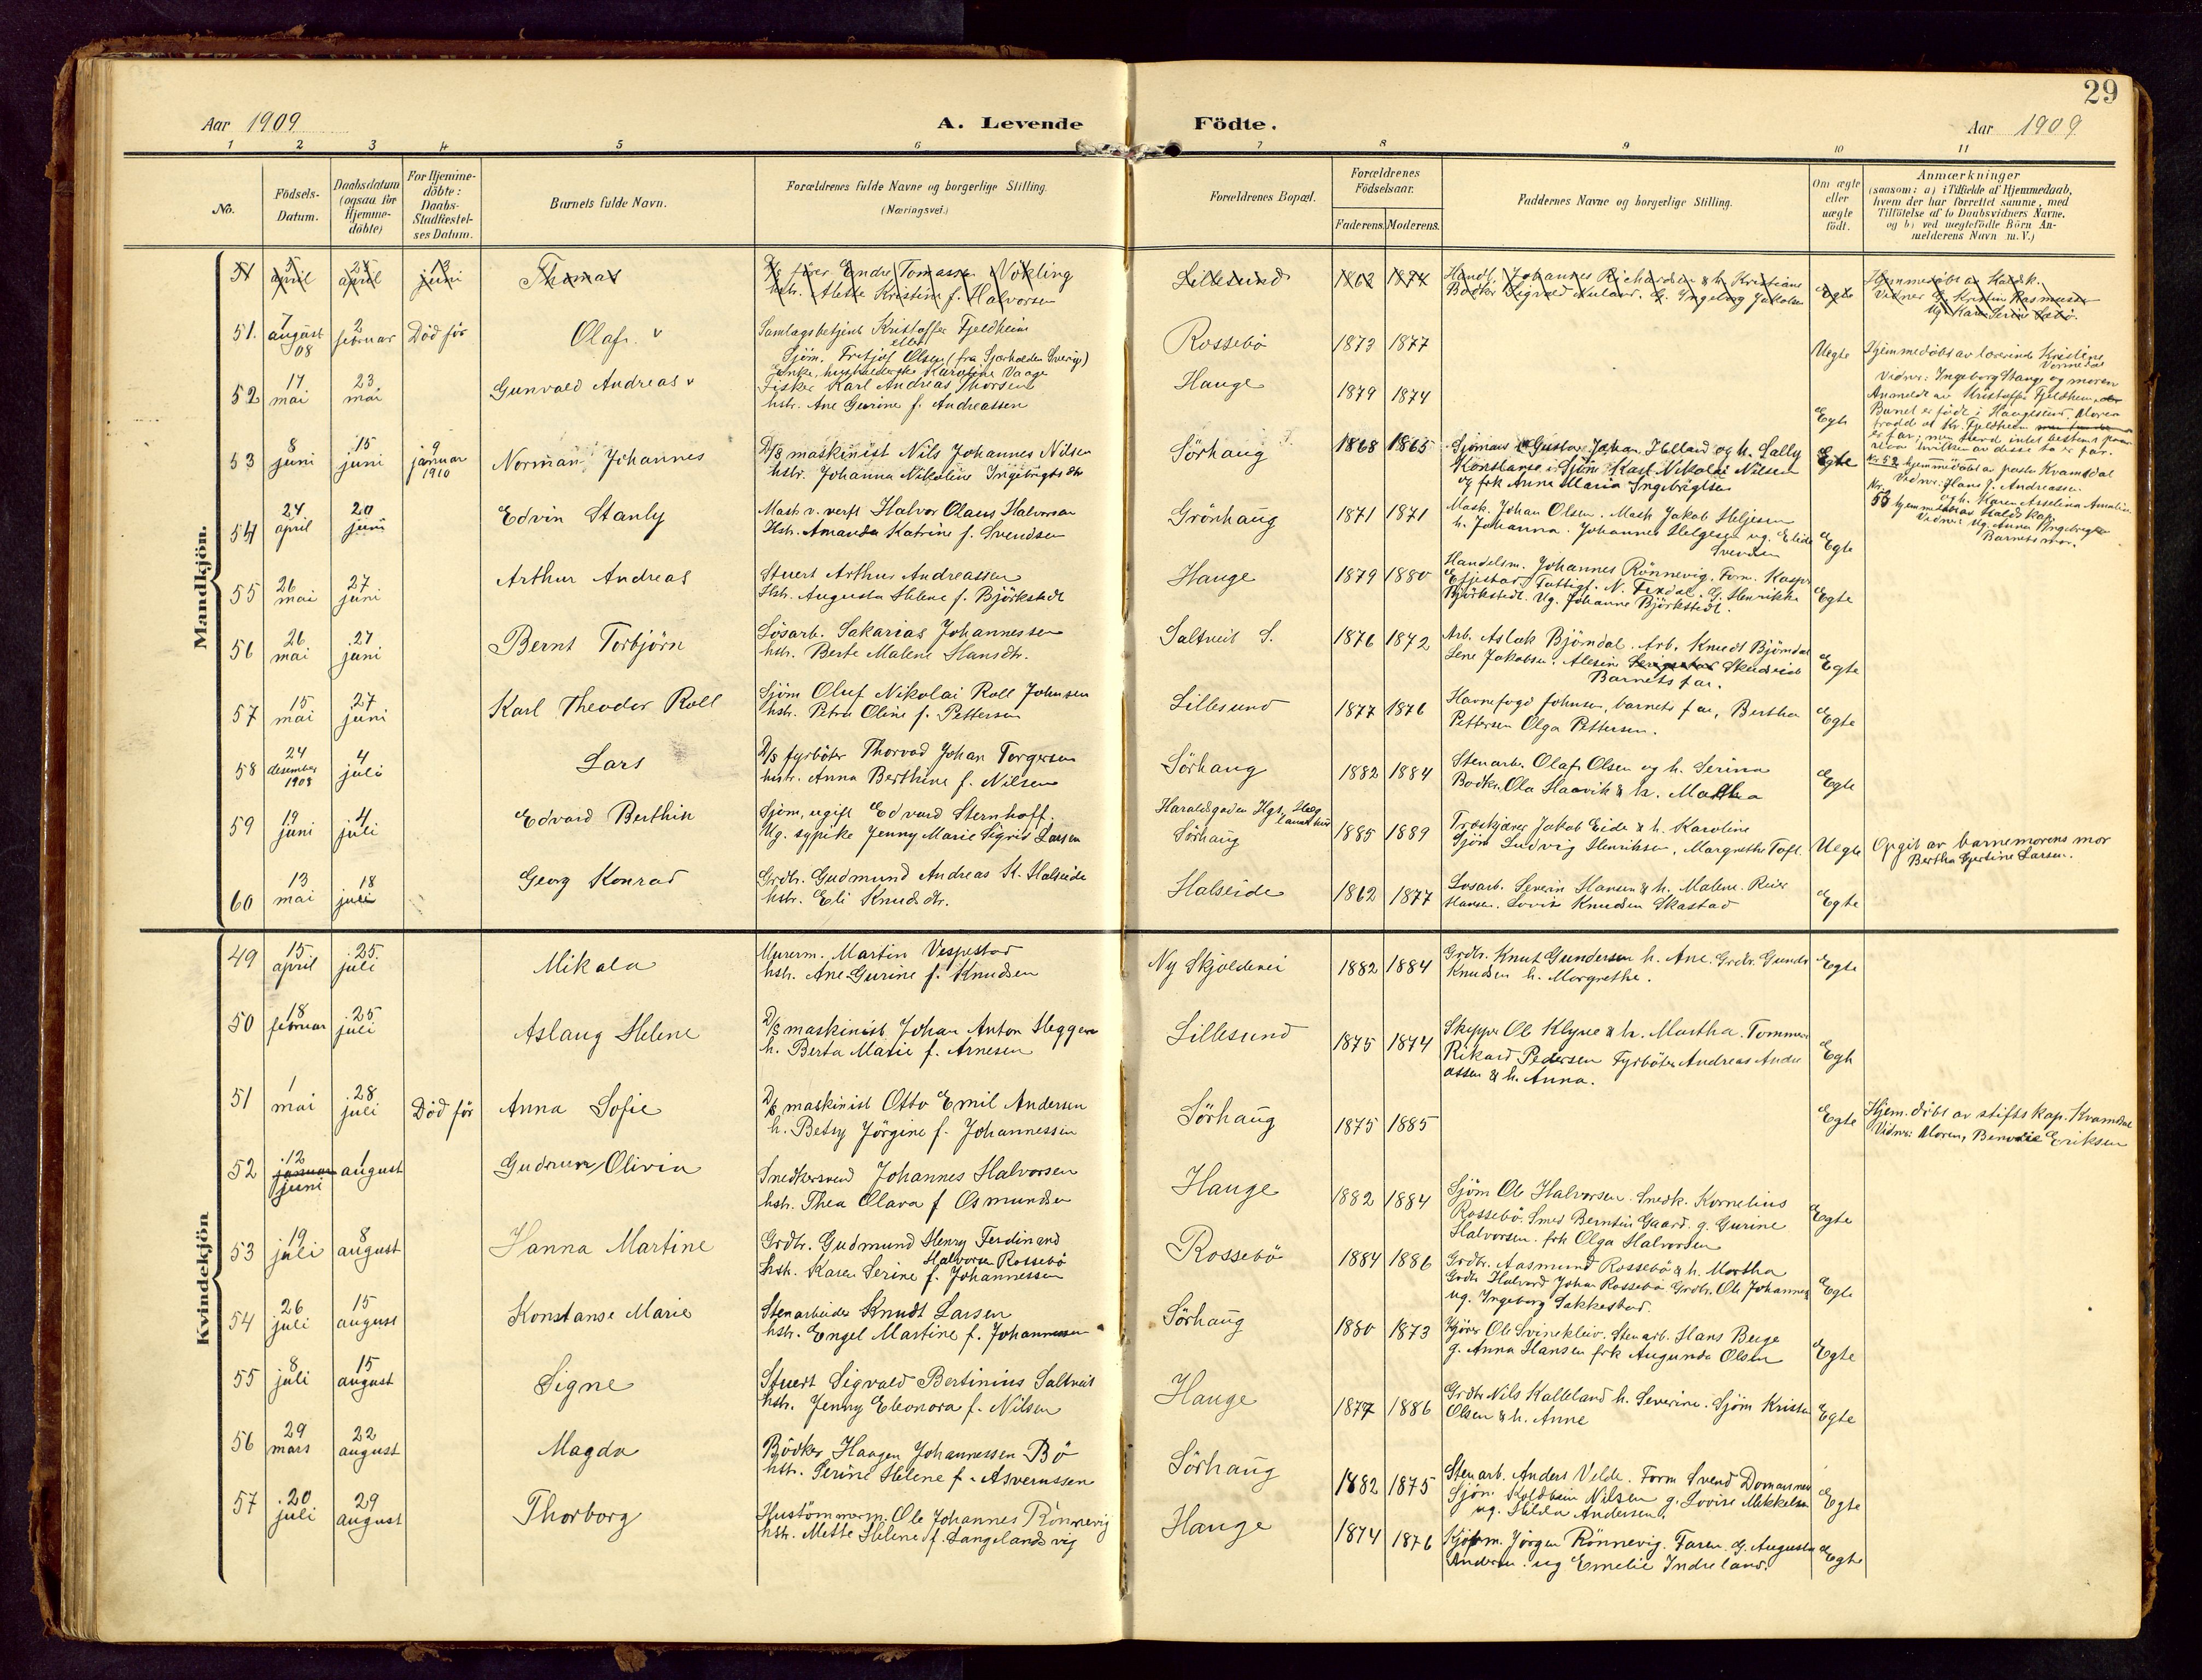 29
Aar 1909 A. Levende Födte. Aar 1909
1 2 3 4 5 6 7 8 9 10 11
No.
Födsels-
Datum.
Daabsdatum
(ogsaa for
Hjemme-
döbte)
For Hjemme-
döbte:
Daabs-
Stadfæstel-
ses Datum.
Barnets fulde Navn.
Forældrenes fulde Navne og borgerlige Stilling.
(Næringsvei.)
Forældrenes Bopæl.
Forældrenes
Födselsaar.
Faderens. Moderens.
Faddernes Navne og borgerlige Stilling.
Om ægte
eller
uægte
födt.
Anmærkninger
(saasom: a) i Tilfælde af Hjemmedaab,
hvem der har forrettet samme, med
Tilföielse af to Daabsvidners Navne.
og b) ved uægtefödte Börn An-
melderens Navn m. V.)
Mandkjön.
51 5 april april 13 juni Thomas
D/s förer Endre Tomassen Vokling
hstr. Alette Kristine f. Halvorsen
Lillesund 1862 1874
Handl. Johannes Richardsen & h. Kristiane
Bödker Sigvald G. Ingeborg Jakobsen
Egte
Hjemmedöbt av
Vidner G. Kristine Rasmussen
Ug. Karen Serine
51. 7 august 08 2 februar Död för Olaf. v
Samlagsbetjent Kristoffer Fjeldheim
eller
Sjöm. Fritjof Olsen (fra Sverige)
Enke, husholderske Karoline Vaage
Rossebö 1873 1877 Uegte
Hjemmedöbt av lærerinde Kristine
Vidner: Ingeborg Stange og moren
Anmeldt av Kristoffer Fjeldheim
Barnet er födt i Haugesund. Moren
52 17 mai 23 mai Gunvald Andreas v
Fisker Karl Andreas Thorsen
hstr. Ane Gurine f. Andreassen
Hauge 1879 1874 Egte
No 52 hjemmedöbt av pastor Kvamsdal
Vidner: Hans J. Andreassen
og h. Karen Asseline Amalie
53 8 juni 15 juni 9 januar 1910 Norman Johannes
D/s maskinist Nils Johannes Nilsen
hstr. Johanna Nikoline Ingebrigtsdtr
Sörhaug 1868 1865
Sjömand Gustav Johan Helland og h. Sally
Konstanse. Sjöm. Karl Nikolai Nilsen
og frk Anna Maria Ingebrigtsen
Egte
Nr. 53 hjemmedöbt av
Vidner: Ug. Anna Ingebrigtsen
Barnets mor.
54 24 april 20 juni Edvin Stanly
Mask v. verft Halvor Olaus Halvorsen
Hstr. Amanda Katrine f. Svendsen
Grönhaug 1871 1871
Mask. Johan Olsen. Mask Jakob Heljesen
h. Johanna. Johannes Helgesen ug. Elide
Svendsen
Egte
55 26 mai 27 juni Arthur Andreas
Stuert Arthur Andreassen
Hstr. Augusta Helene f. Björkstedt
Hauge 1879 1880
Handelsm. Johannes Rönnevig. Tom. Kasper
Fattigf. N. G. Henrikke
Björkstedt. Ug. Johanne Björkstedt.
Egte
56 26 mai 27 juni Bernt Torbjörn
Lösarb. Sakarias Johannessen
hstr. Berte Malene Hansdtr.
Saltveit S. 1876 1872
Arb. Aslak Bjömdal. Arb. Knudt Bjömdal
Lene Jakobsen. Alesine
Barnets far.
Egte
57 15 mai 27 juni Karl Theodor Roll
Sjöm Oluf Nikolai Roll Johnsen
hstr. Petra Oline f. Pettersen
Lillesund 1877 1876
Havnefogd Johnsen, barnets far, Bertha
Pettersen Olga Pettersen.
Egte
58 24 desember 1908 4 juli Lars
D/s fyrböter Thorvad Johan Torgersen
hustr. Anna Berthine f. Nilsen
Sörhaug 1882 1884
Stenarb. Olaf Olsen og h. Serina
Bödker Ola Haavik & h. Martha
Egte
59 19 juni 4 juli Edvard Berthin
Sjöm, ugift Edvard Sternhoff.
Ug. sypike Jenny Marie Sigrid Larsen
Haraldsgaden Hgs.
Sörhaug 1885 1889
Træskjærer Jakob Eide & h. Karoline
Sjöm Ludvig Henriksen, Margrethe Toft
Uegte
Opgit av barnemorens mor
Bertha Gjertine Larsen.
60 13 mai 18 juli Georg Konrad
Grdbr. Gudmund Andreas K. Halseide
hstr. Eli Knudsdtr.
Halseide 1862 1877
Losarb. Severin Hansen & h. Malene. Reier
Hansen. Lovise Knudsen Skastad
Egte
Kvindekjön
49 15 april 25 juli Mikala
Murerm. Martin Vespestad
hstr. Ane Gurine f. Knudsen
Ny Skjoldevei 1882 1884
Grdbr. Knut Gundersen h. Ane. Grdbr. Gunder
Knudsen h. Margrethe.
Egte
50 18 februar 25 juli Aslaug Helene
D/s maskinist Johan Anton Heggen
h. Berta Matie f. Arnesen
Lillesund 1875 1874
Skipper Ole Klyve & h. Martha. Tommer
Rikard Pedersen Fyrböter Andreas Andre
assen & h. Anna.
Egte
51 1 mai 28 juli Död för Anna Sofie
D/s maskinist Otto Emil Andersen
h. Betsy Jörgine f. Johannessen
Sörhaug 1875 1885 Egte
Hjem. döbt av stiftskap. Kvamsdal
Vidner: Moren, Eriksen
52 12 januar juni 1 august Gudrun Olivia
Snedkersvend Johannes Halvorsen
hstr. Thea Olava f Osmundsen
Hauge 1882 1884
Sjöm Ole Halvorsen. Snedk. Kornelius
Rossebö. Smed Berntin Gaard. g. Gurine
Halvorsen. frk Olga Halvorsen
Egte
53 19 juli 8 august Hanna Martine
Grdbr. Gudmund Henry Ferdinand
Halvorsen Rossebö
hstr. Karen Serine f. Johannessen
Rossebö 1884 1886
Grdbr. Aasmund Rossebö & h. Martha
Grdbr. Halvard Johan Rossebö Grdbr. Ole Johannes
ug. Ingeborg Sakkestad.
Egte
54 26 juli 15 august Konstanse Marie
Stenarbeider Knudt Larsen
hstr. Engel Martine f. Johannessen
Sörhaug 1880 1873
Kjörer Ole Svinekleiv. Stenarb. Hans Berge
g. Anna Hansen frk Augunda Olsen
Egte
55 8 juli 15 august Signe
Stuert Sigvald Bertinius Saltveit
hstr. Jenny Eleonora f. Nilsen
Hauge 1877 1886
Grdbr Nils Kalleland h. Severine. Sjöm Kristen
Olsen & h. Anne
Egte
56 29 mars 22 august Magda
Bödker Haagen Johannessen Bö
hstr. Serine Helene f. Asverussen
Sörhaug 1882 1875
Stenarb. Anders Velde. Form Svend Domasnes
Sjöm. Koldbein Nilsen g. Lovise Mikkelsen
ug. Hilda Andersen.
Egte
57 20 juli 29 august Thorborg
Hustömmerm. Ole Johannes Rönnevig
hstr. Mette Helene f. Langelandsvig
Hauge 1874 1876
Kjöpm. Jörgen Rönnevig. Faren. G. Augusta
Andersen. ug Emelie Indreland.
Egte